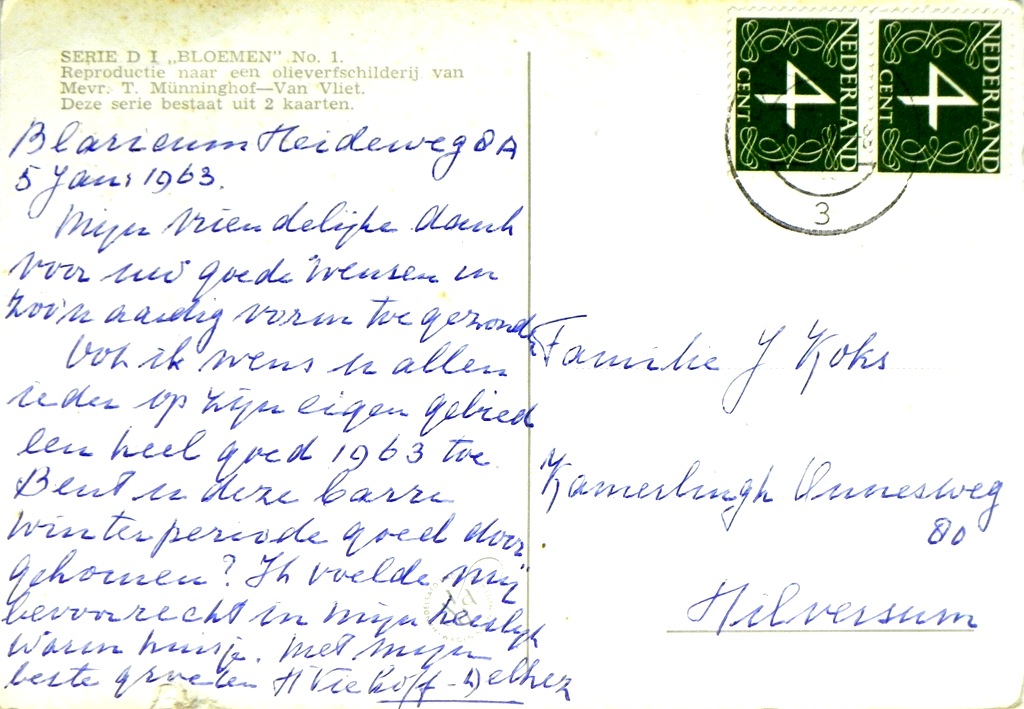 SERIE D I „BLOEMEN" No. 1.
Reproductie naar een olieverfschilderij van
Mevr. T. Münninghof—Van Vliet.
Deze serie bestaat uit 2 kaarten.
Blaricum Heideweg 8A
5 Jan. 1963.
Mijn vriendelijke dank
voor uw goede wensen in
zoo'n aardig vorm toegezonden
Ook ik wens u allen
ieder op zijn eigen gebied
een heel goed 1963 toe
Bent u deze barre
winterperiode goed door
gekomen? Ik voelde mij
bevoorrecht in mijn heerlijk
warm huisje. Met mijn
beste groeten H Viehoff-Delhez
NEDERLAND
4
CENT
NEDERLAND
4
CENT
3
Familie J Koks
Kamerlingh Onnesweg
80
Hilversum